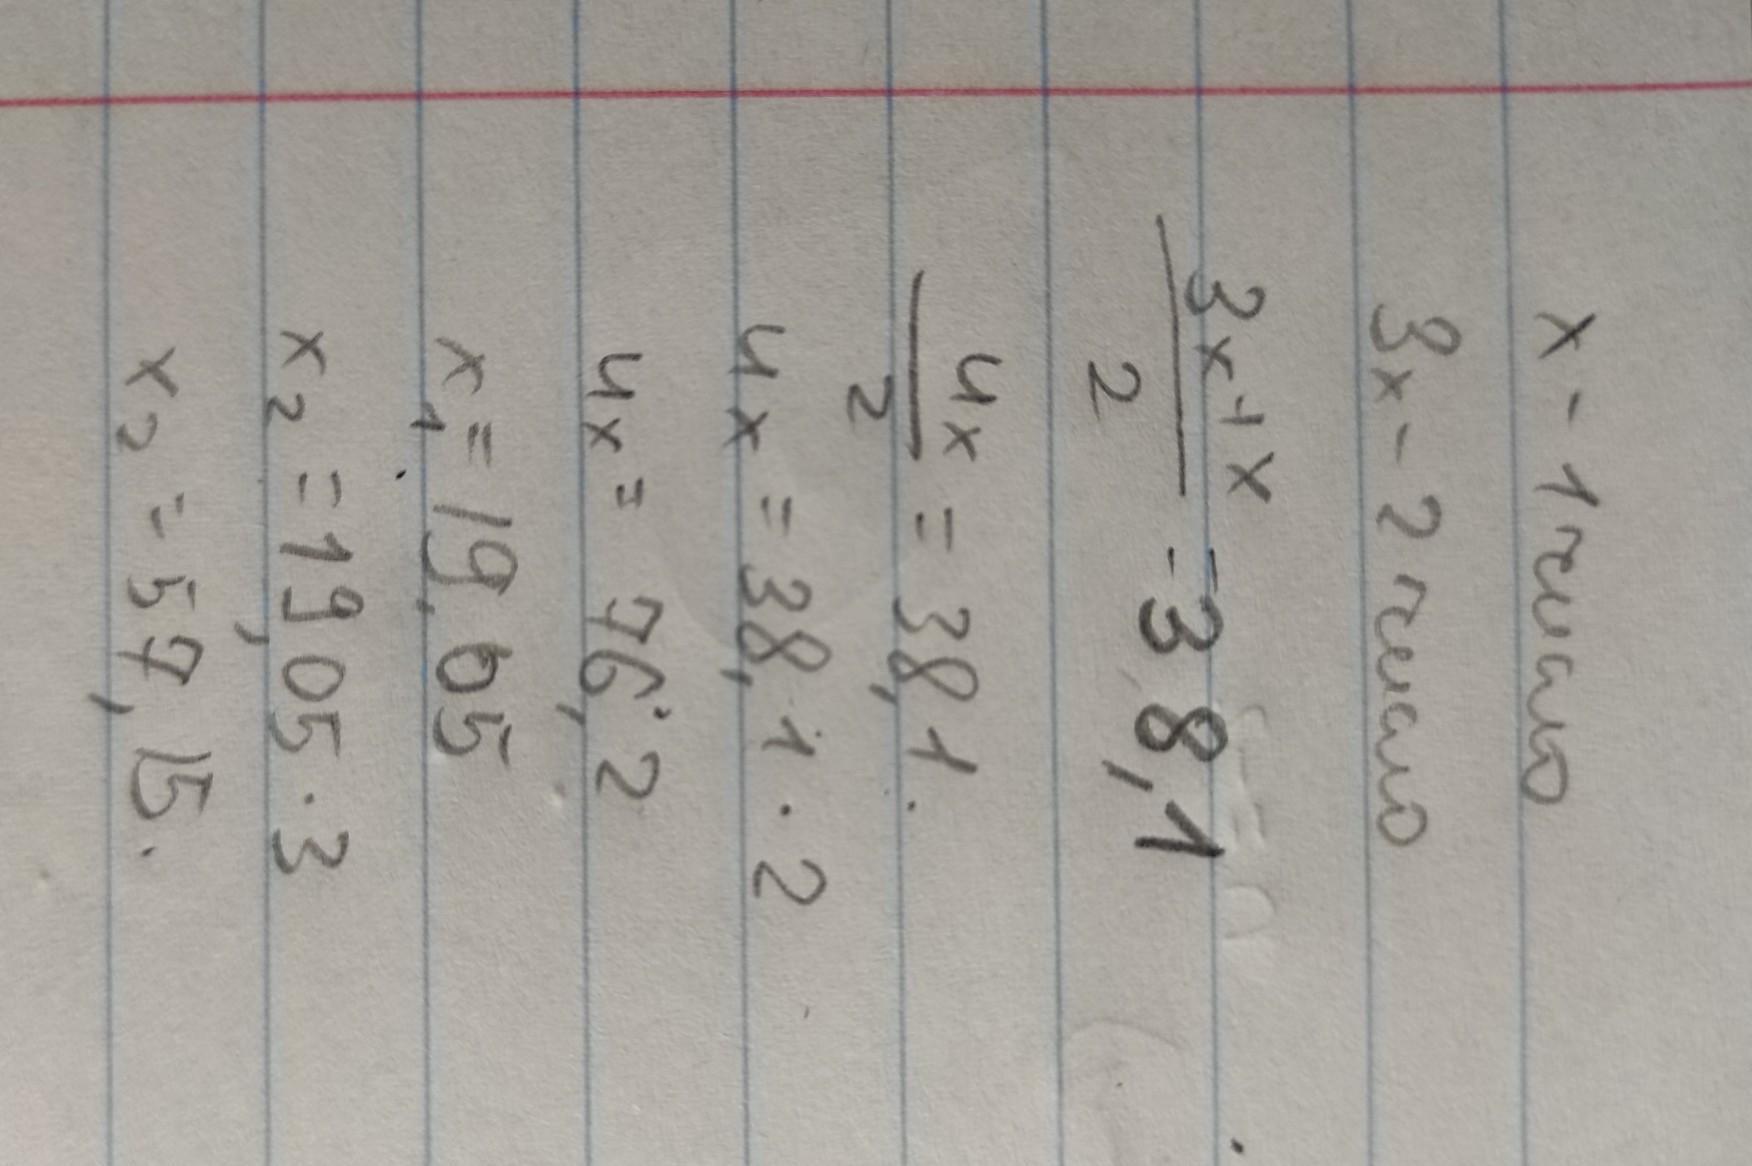 x - 1 число
3x - 2 число
3x+x
2
= 38,1
4x
2
= 38,1.
4x = 38,1 · 2
4x = 76,2
x1 = 19,05
x2 = 19,05 · 3
x2 = 57,15.